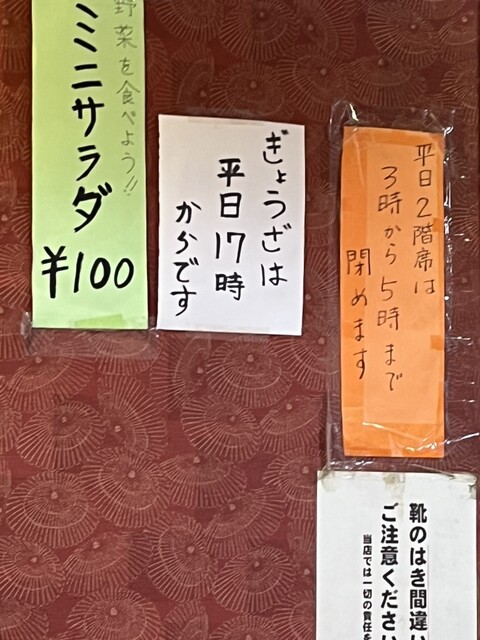 野菜を食べよう!!
ミニサラダ
¥100
ぎょうざは
平日17時
からです
平日2階席は
3時から5時まで
閉めます
靴のはき間違い
ご注意ください
当店では一切の責任を